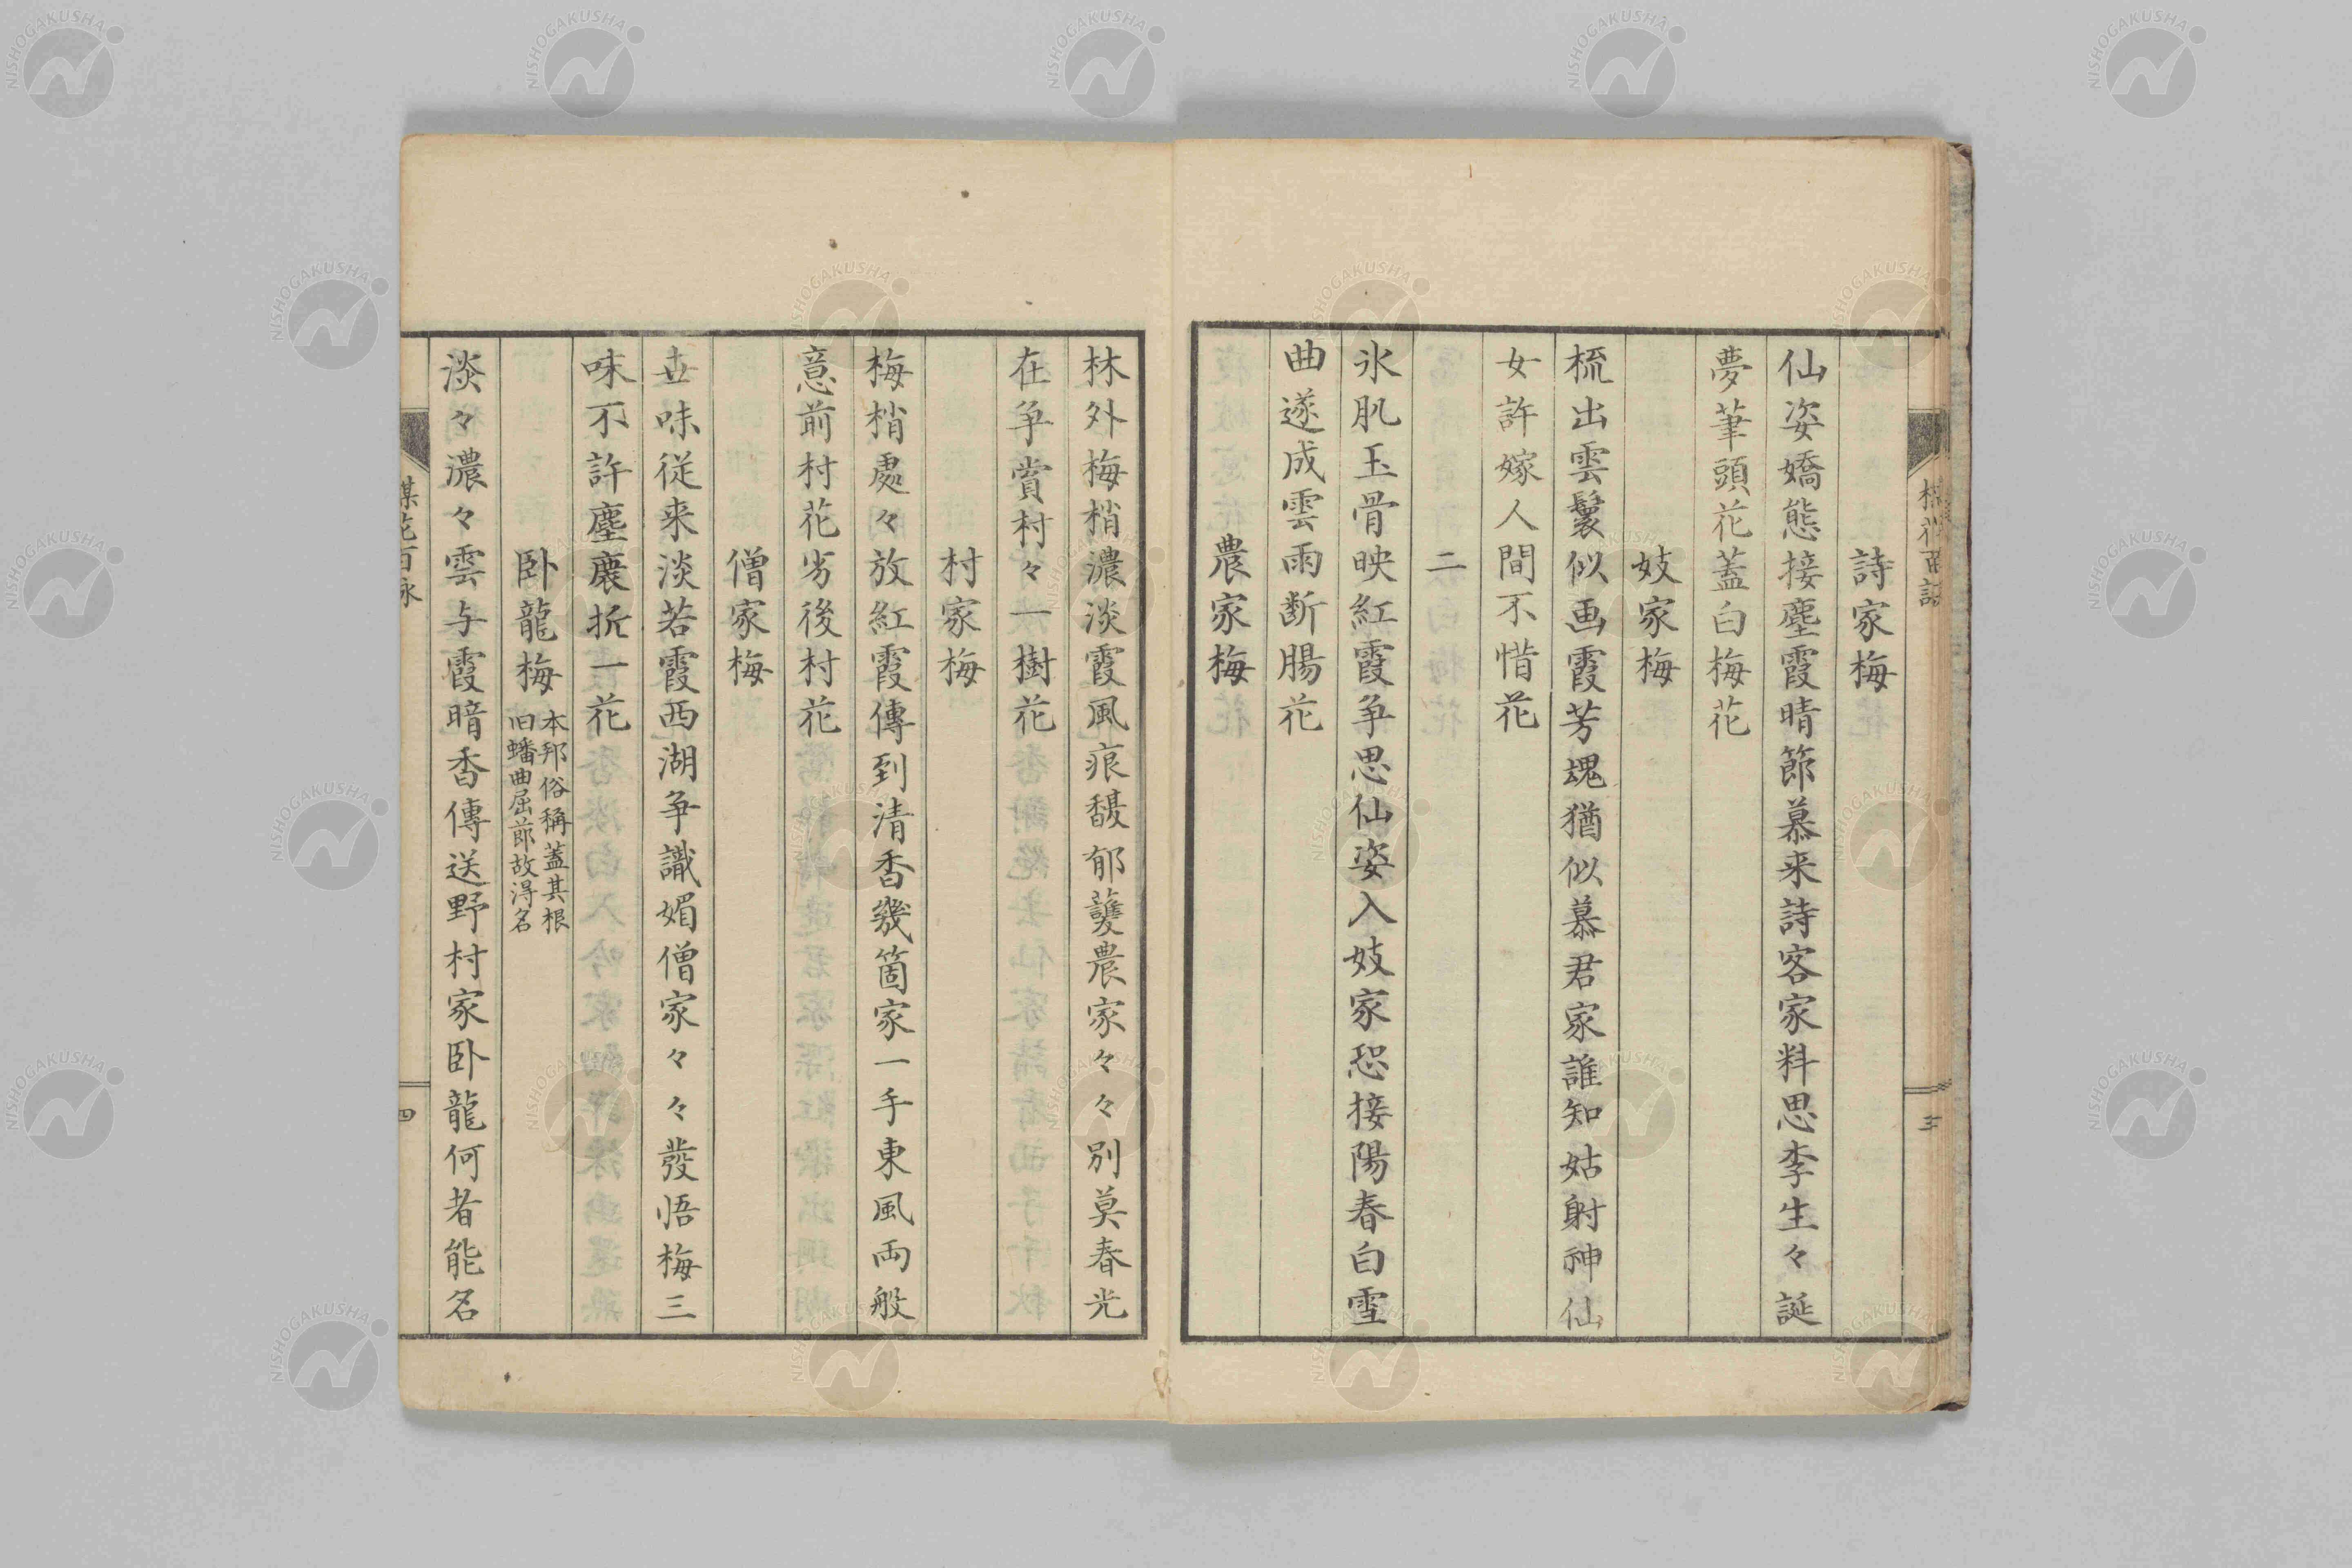 詩家梅
仙姿嬌態接塵霞晴節慕来詩客家料思李生々誕
夢筆頭花蓋白梅花
妓家梅
梳出雲鬟似画霞芳魂猶似慕君家誰知姑射神仙
女許嫁人間不惜花
二
氷肌玉骨映紅霞争思仙姿入妓家恐接陽春白雪
曲遂成雲雨断腸花
農家梅
林外梅梢濃淡霞風痕馥郁農家々々別莫春光
在争賞村々一樹花
村家梅
梅梢處々放紅霞傳到清香幾箇家一手東風両般
意前村花劣後村花
僧家梅
世味従来淡若霞西湖争識媚僧家々々發悟梅三
味不許塵裏折一花
臥龍梅 本邦俗稱蓋其根
旧蟠曲屈節故得名
淡々濃々雲与霞暗香傳送野村家臥龍何者能名
三
四
NISHOGAKUSHA